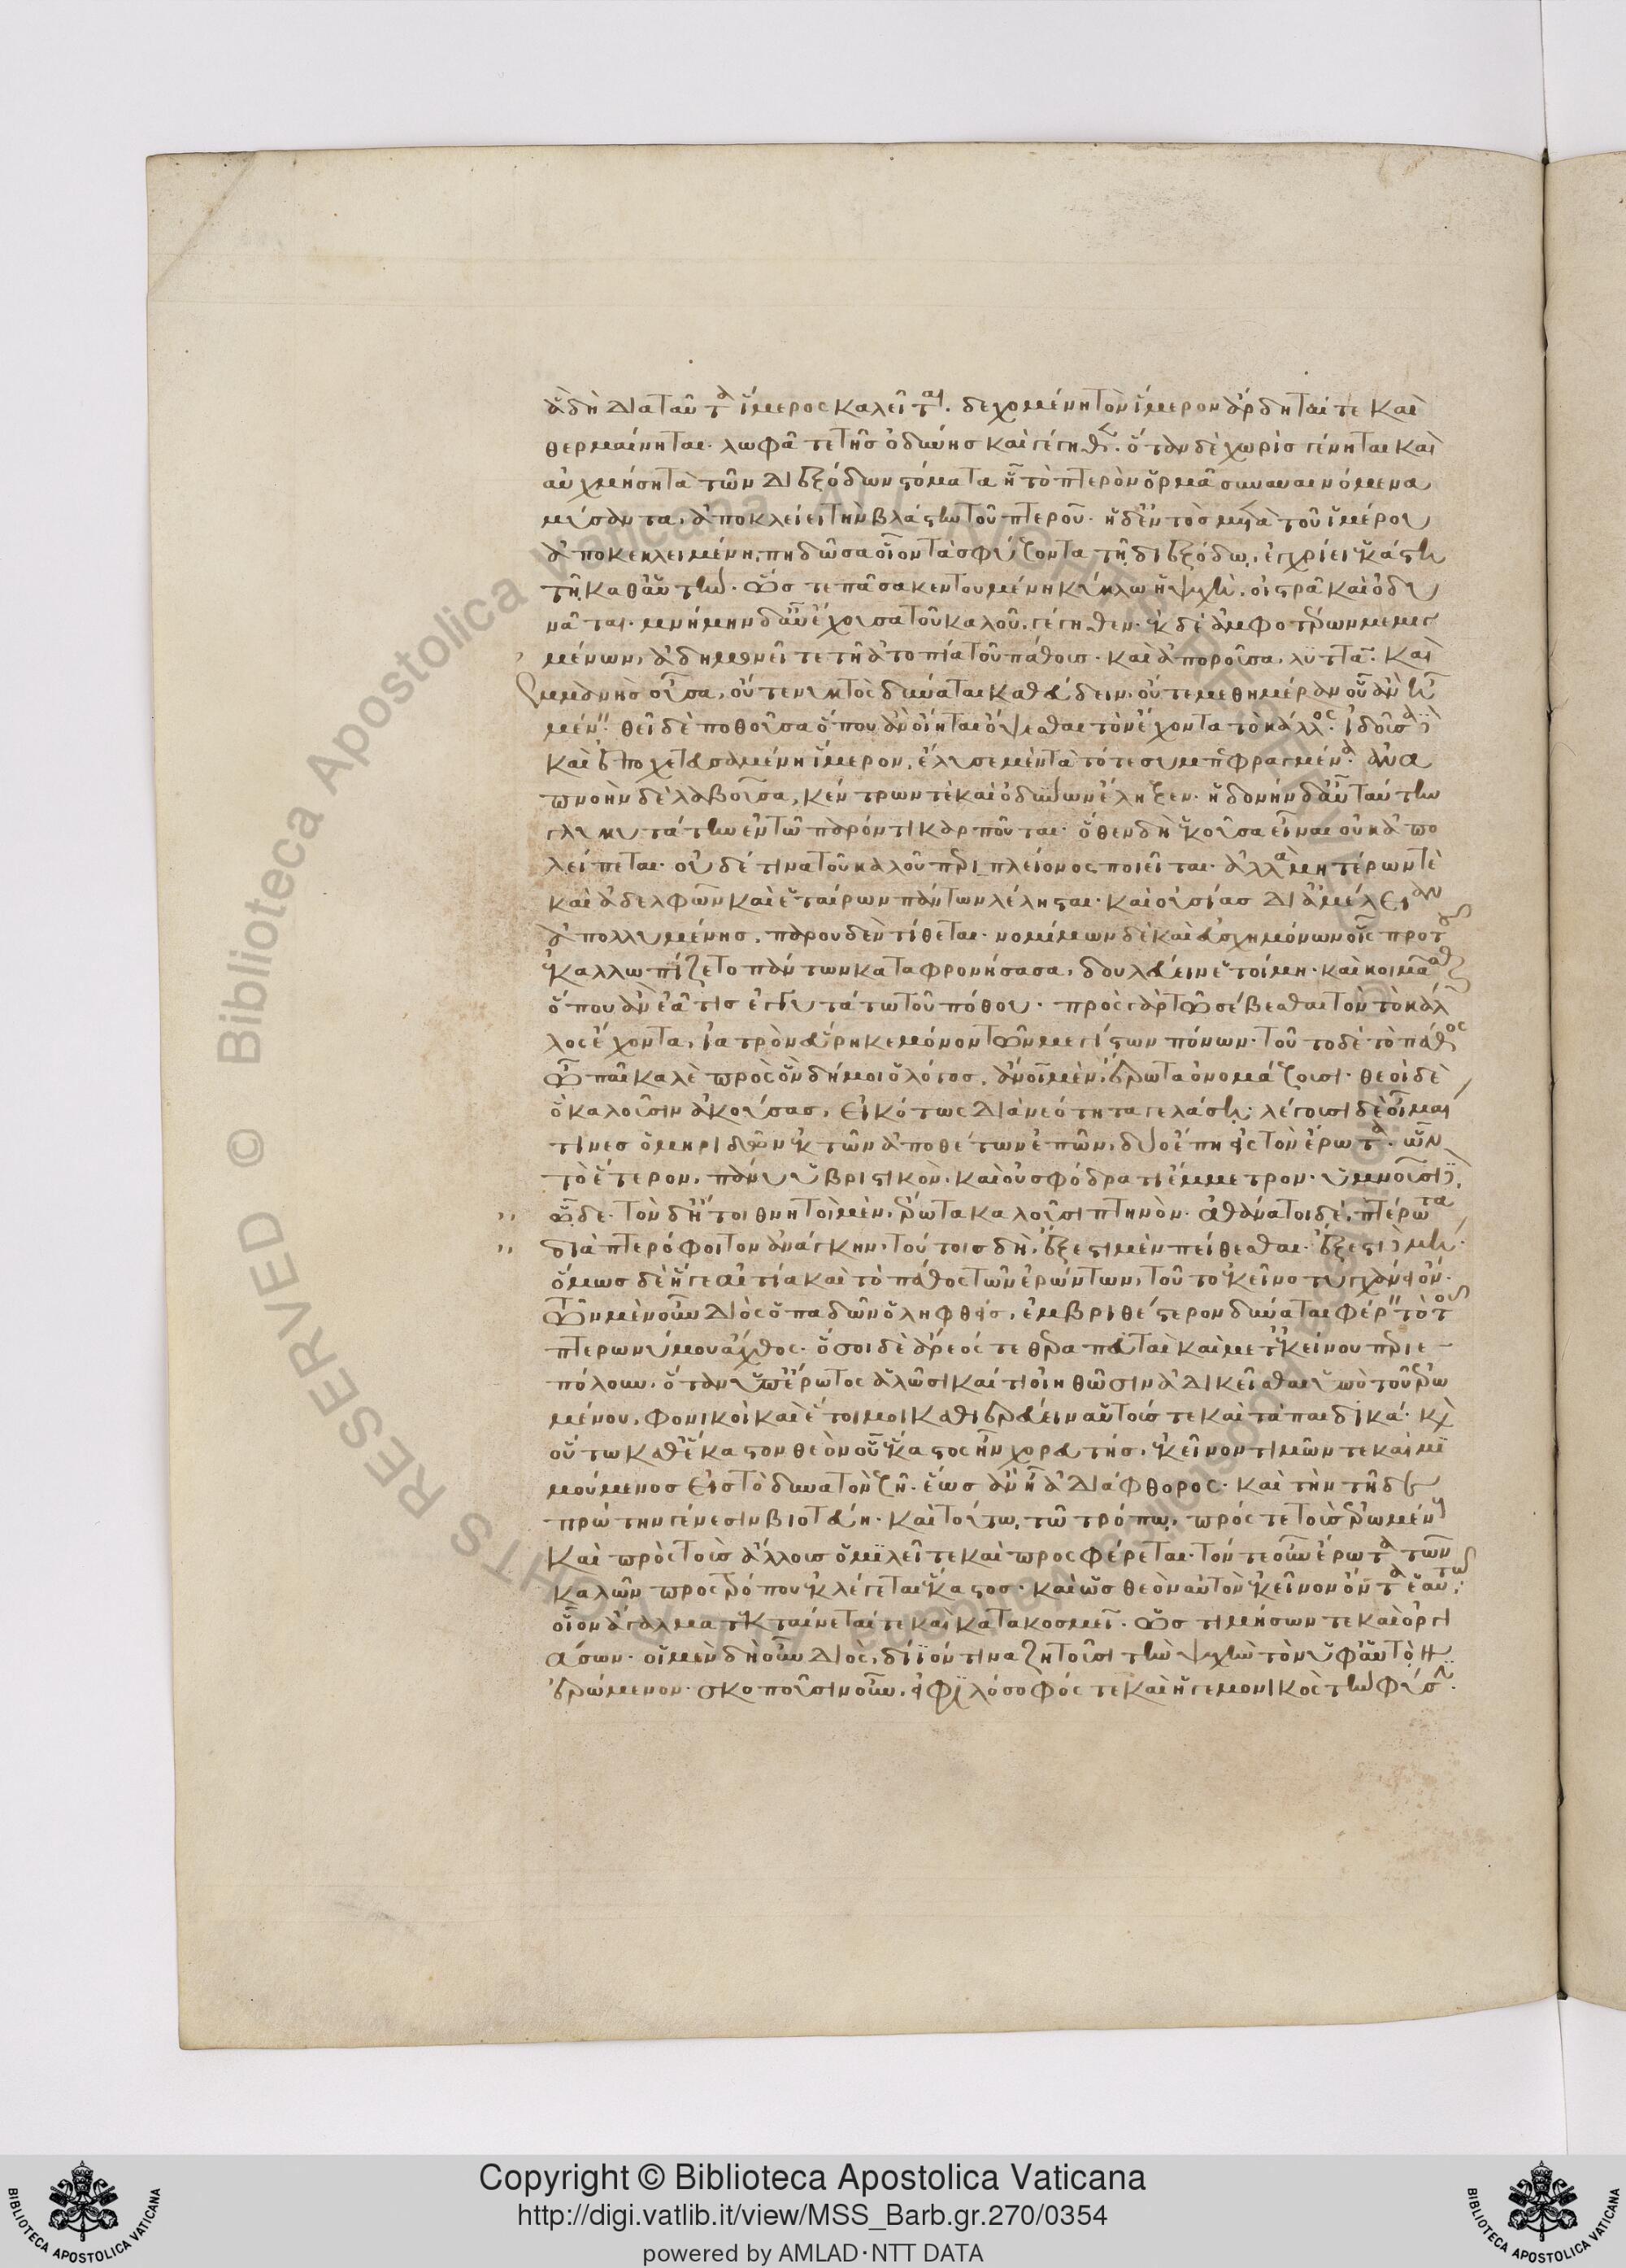 ἃ δὴ διὰ ταῦτα ἵμερος καλεῖται. δεχομένη τὸν ἵμερον ἄρδηταί τε καὶ
θερμαίνηται. λωφᾶ τε τῆς ὀδύνης καὶ γέγηθεν. ὅταν δὲ χωρὶς γένηται καὶ
αὐχμήση τὰ τῶν διεξόδων στόματα ᾗ τὸ πτερὸν ὁρμᾶ συναυαινόμενα
μύσαντα, ἀποκλείει τὴν βλάστην τοῦ πτεροῦ. ἡ δ' ἐντὸς μετὰ τοῦ ἱμέρου
ἀποκεκλειμένη, πηδῶσα οἷον τὰ σφύζοντα τῇ διεξόδῳ, ἐγχρίει ἑκάστη
τῇ καθ' αὑτήν. ὥστε πᾶσα κεντουμένη κύκλω ἡ ψυχὴ, οἰστρᾶ καὶ ὀδυ
νᾶται. μνήμην δ' αὖ ἔχουσα τοῦ καλοῦ, γέγηθεν. ἐκ δὲ ἀμφοτέρων μεμιγ
μένων, ἀδημονεῖ τε τῆ ἀτοπία τοῦ πάθους. καὶ ἀποροῦσα, λυττᾶ. καὶ
ἐμμανὴς οὖσα, οὔτε νυκτὸς δύναται καθεύδειν, οὔτε μεθημέραν οὗ ἂν ἦ
μένειν. θεῖ δὲ ποθοῦσα ὅπου ἂν οἴηται ὄψεσθαι τὸν ἔχοντα τὸ κάλλος. ἰδοῦσα δὲ
καὶ ἐποχετευσαμένη ἵμερον, ἔλυσε μὲν τὰ τότε συμπεφραγμένα. ἀνα
πνοὴν δὲ λαβοῦσα, κέντρων τὲ καὶ ὀδύνων ἔληξεν. ἡδονὴν δ' αὖ ταύτην
γλυκυτάτην ἐν τῶ παρόντι καρποῦται. ὅθεν δὴ ἑκοῦσα εἶναι οὐκ ἀπο
λείπεται. οὐδέ τινα τοῦ καλοῦ περὶ πλείονος ποιεῖται. ἀλλὰ μητέρων τὲ
καὶ ἀδελφῶν καὶ ἑταίρων πάντων λέλησται. καὶ οὐσίας δι' ἀμέλειαν
ἀπολλυμένης, παρ' οὐδὲν τίθεται. νομίμων δὲ καὶ εὐσχημόνων οἷς προτοῦ
ἐκαλλωπίζετο πάντων καταφρονήσασα, δουλεύειν ἑτοίμη. καὶ κοιμᾶσθαι
ὅπου ἂν ἐᾶ τις ἐγγυτάτω τοῦ πόθου. πρὸς γὰρ τῶ σέβεσθαι τὸν τὸ κάλ
λος ἔχοντα, ἰατρὸν εὕρηκε μόνον τῶν μεγίστων πόνων. τοῦτο δὲ τὸ πάθος
ὦ παῖ καλὲ πρὸς ὃν δή μοι ὁ λόγος, ἄνοι μὲν, ἔρωτα ὀνομάζουσι. θεοὶ δὲ
ὃ καλοῦσιν ἀκούσας, εἰκότως διὰ νεότητα γελάση. λέγουσι δὲ οἶμαι
τινὲς ὁμηριδῶν ἐκ τῶν ἀποθέτων ἐπῶν, δύο ἔπη εἰς τὸν ἔρωτα. ὧν
τὸ ἕτερον, πάνυ ὑβριστικὸν, καὶ οὐ σφόδρα τι ἔμμετρον. ὑμνοῦσι δὲ,
ὧδε. τὸν δ' ἤτοι θνητοὶ μὲν, ἔρωτα καλοῦσι πτηνὸν. ἀθάνατοι δέ, πτέρωτα
διὰ πτερόφοιτον ἀνάγκην. τούτοις δὴ, ἔξεστι μὲν πείθεσθαι. ἔξεστι δὲ μή.
ὅμως δὲ ἥ γε αἰτία καὶ τὸ πάθος τῶν ἐρώντων, τοῦτο ἐκεῖνο τυγχάνει ὄν.
τῶν μὲν οὖν διὸς ὀπαδῶν ὁ ληφθεὶς, ἐμβριθέστερον δύναται φέρειν τὸ τοῦ
πτερωνύμου ἄχθος. ὅσοι δὲ ἄρεός τε θεραπευταὶ καὶ μετ' ἐκείνου περιε-
πόλουν, ὅταν ὑπ' ἔρωτος ἁλῶσι καί τι οἰηθῶσιν ἀδικεῖσθαι ὑπὸ τοῦ ἐρω
μένου, φονικοὶ καὶ ἕτοιμοι καθιερεύειν αὑτούς τε καὶ τὰ παιδικά. καὶ
οὕτω καθ' ἕκαστον θεὸν οὗ ἕκαστος ἦν χορευτής, ἐκεῖνον τιμῶν τε καὶ μι
μούμενος εἰς τὸ δυνατὸν ζῆ. ἕως ἂν ἦ ἀδιάφθορος. καὶ τὴν τῆδε
πρώτην γένεσιν βιοτεύη. καὶ τούτῳ, τῶ τρόπῳ, πρός τε τοὺς ἐρωμένους
καὶ πρὸς τοὺς ἄλλους ὁμιλεῖ τε καὶ προσφέρεται. τόν τε οὖν ἔρωτα τῶν
καλῶν πρὸς τρόπου ἐκλέγεται ἕκαστος. καὶ ὡς θεὸν αὐτὸν ἐκεῖνον ὄντα ἑαυτῷ.
οἷον ἄγαλμα τεκταίνεταί τε καὶ κατακοσμεῖ. ὡς τιμήσων τε καὶ ὀργι
άσων. οἱ μὲν δὴ οὖν διὸς, δίϊόν τινα ζητοῦσι τὴν ψυχὴν τὸν ὑφ' αὑτῶν
ἐρώμενον. σκοποῦσιν οὖν, εἰ φιλόσοφός τε καὶ ἡγεμονικὸς τὴν φύσιν.
Copyright © Biblioteca Apostolica Vaticana
http://digi.vatlib.it/view/MSS_Barb.gr.270/0354
powered by AMLAD·NTT DATA